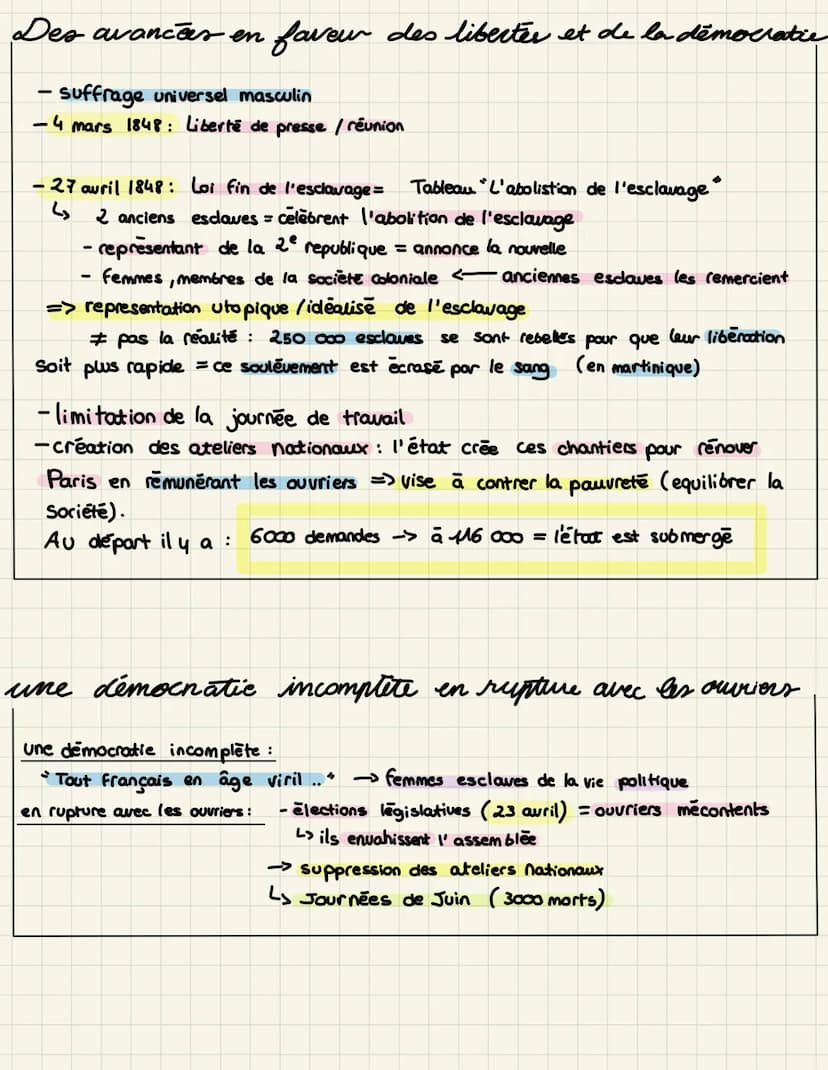 Des avancées en faveur des libertés et de la démocratie
- suffrage universel masculin
- 4 mars 1848 : Liberté de presse / réunion
- 27 avril 1848 : Loi fin de l'esclavage = Tableau "L'abolistion de l'esclavage"
↳ 2 anciens esclaves = célèbrent l'abolition de l'esclavage
- représentant de la 2e republique = annonce la nouvelle
- femmes, membres de la société coloniale ← anciennes esclaves les remercient
=> representation utopique / idéalisé de l'esclavage
≠ pas la réalité : 250 000 esclaves se sont rebellés pour que leur libération
soit plus rapide = ce soulévement est écrasé par le sang (en martinique)
- limitation de la journée de travail
- création des ateliers nationaux : l'état crée ces chantiers pour rénover
Paris en rémunérant les ouvriers => vise à contrer la pauvreté (equilibrer la
société).
Au départ il y a : 6000 demandes -> à 116 000 = l'état est submergé
une démocratie incomplète en rupture avec les ouvriers
une démocratie incomplète :
"Tout français en âge viril .." → femmes esclaves de la vie politique
en rupture avec les ouvriers : - élections législatives (23 avril) = ouvriers mécontents
↳ ils envahissent l'assemblée
→ suppression des ateliers nationaux
↳ Journées de Juin (3000 morts)